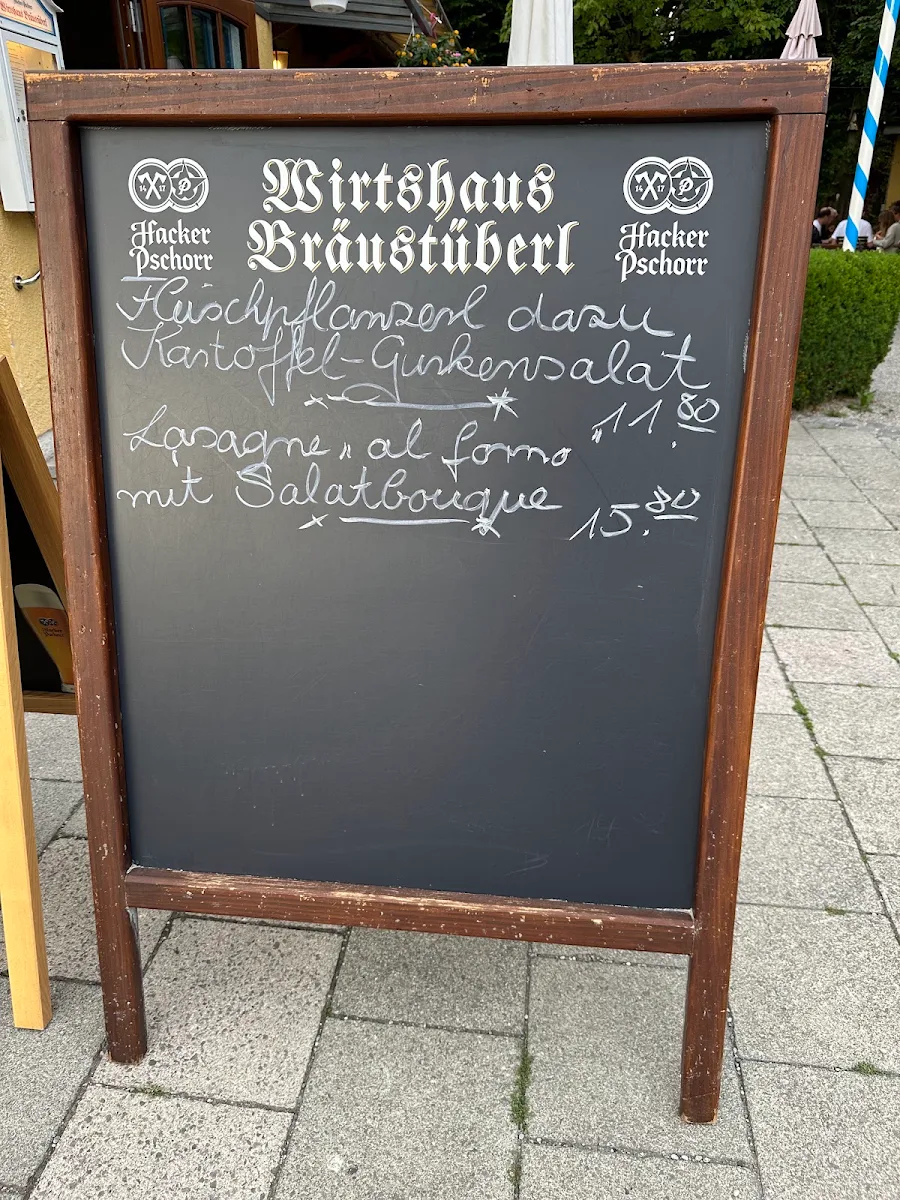 Wirtshaus
Bräustüberl
14 17
Hacker
Pschorr
14 17
Hacker
Pschorr
Fleischpflanzerl dazu
Kartoffel-Gurkensalat
11.80
Lasagne „ al forno
mit Salatbouque
15.80